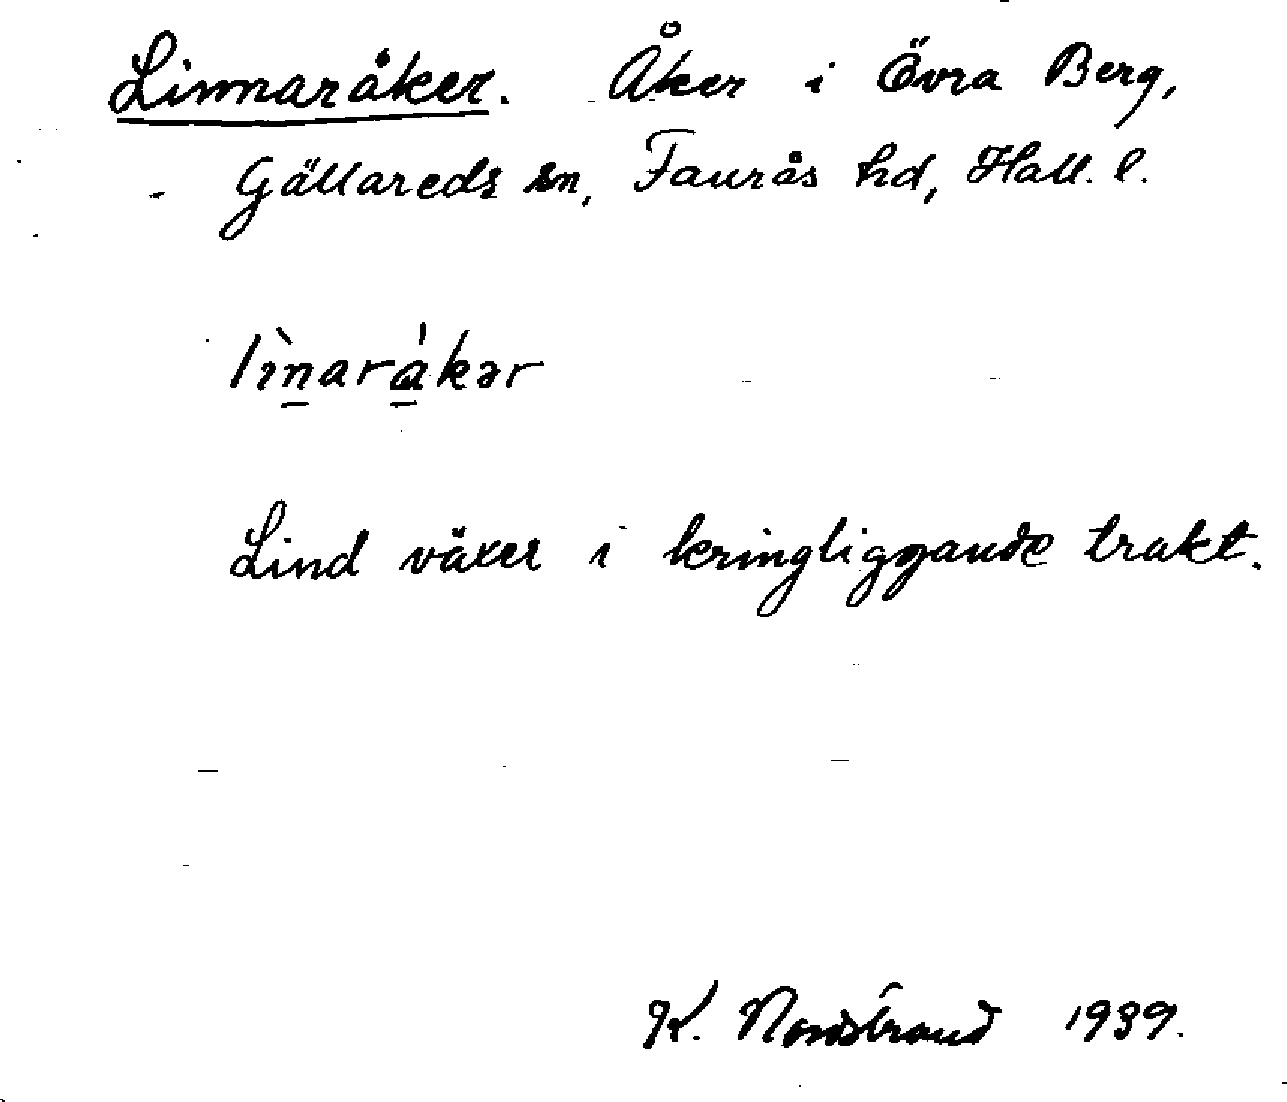 Linnaråker. Åker i Övra Berg,
Gällareds sn, Faurås hd, Hall. l.
lìnaråkər
Lind växer i kringliggande trakt.
K. Nordstrand 1939.